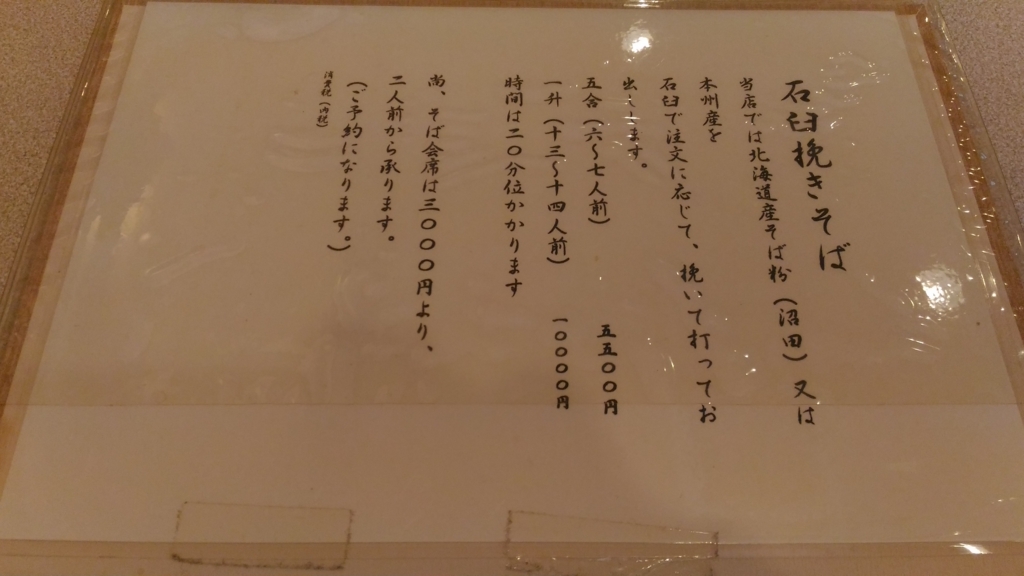 石臼挽きそば
当店では北海道産そば粉(沼田)又は
本州産を
石臼で注文に応じて、挽いて打ってお
出しします。
五合(六〜七人前) 五五〇〇円
一升(十三〜十四人前) 一〇〇〇〇円
時間は二〇分位かかります
尚、そば会席は三〇〇〇円より、
二人前から承ります。
(ご予約になります。)
消費税(内税)